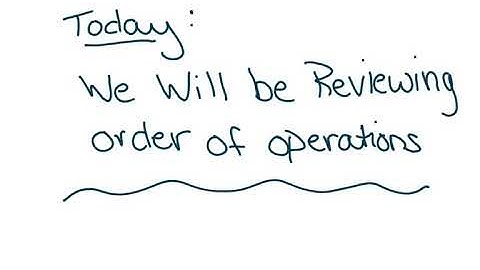 Today:
We Will be Reviewing
order of operations